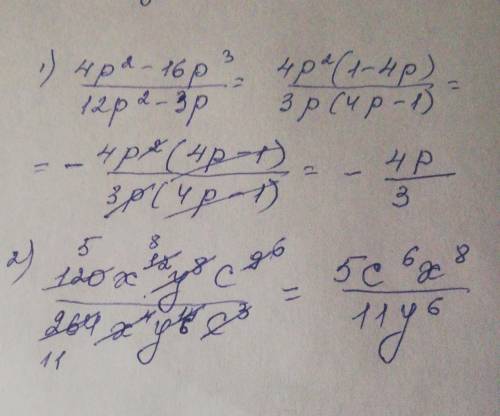 1) (4p² - 16p³)/(12p² - 3p) = (4p²(1 - 4p))/(3p(4p - 1)) =
= - (4p²(4p - 1))/(3p(4p - 1)) = - 4p/3
2) (120x¹²y⁸c⁹)/(264x⁴y c³) = (5c⁶x⁸)/(11y⁶)
5 8 6
11